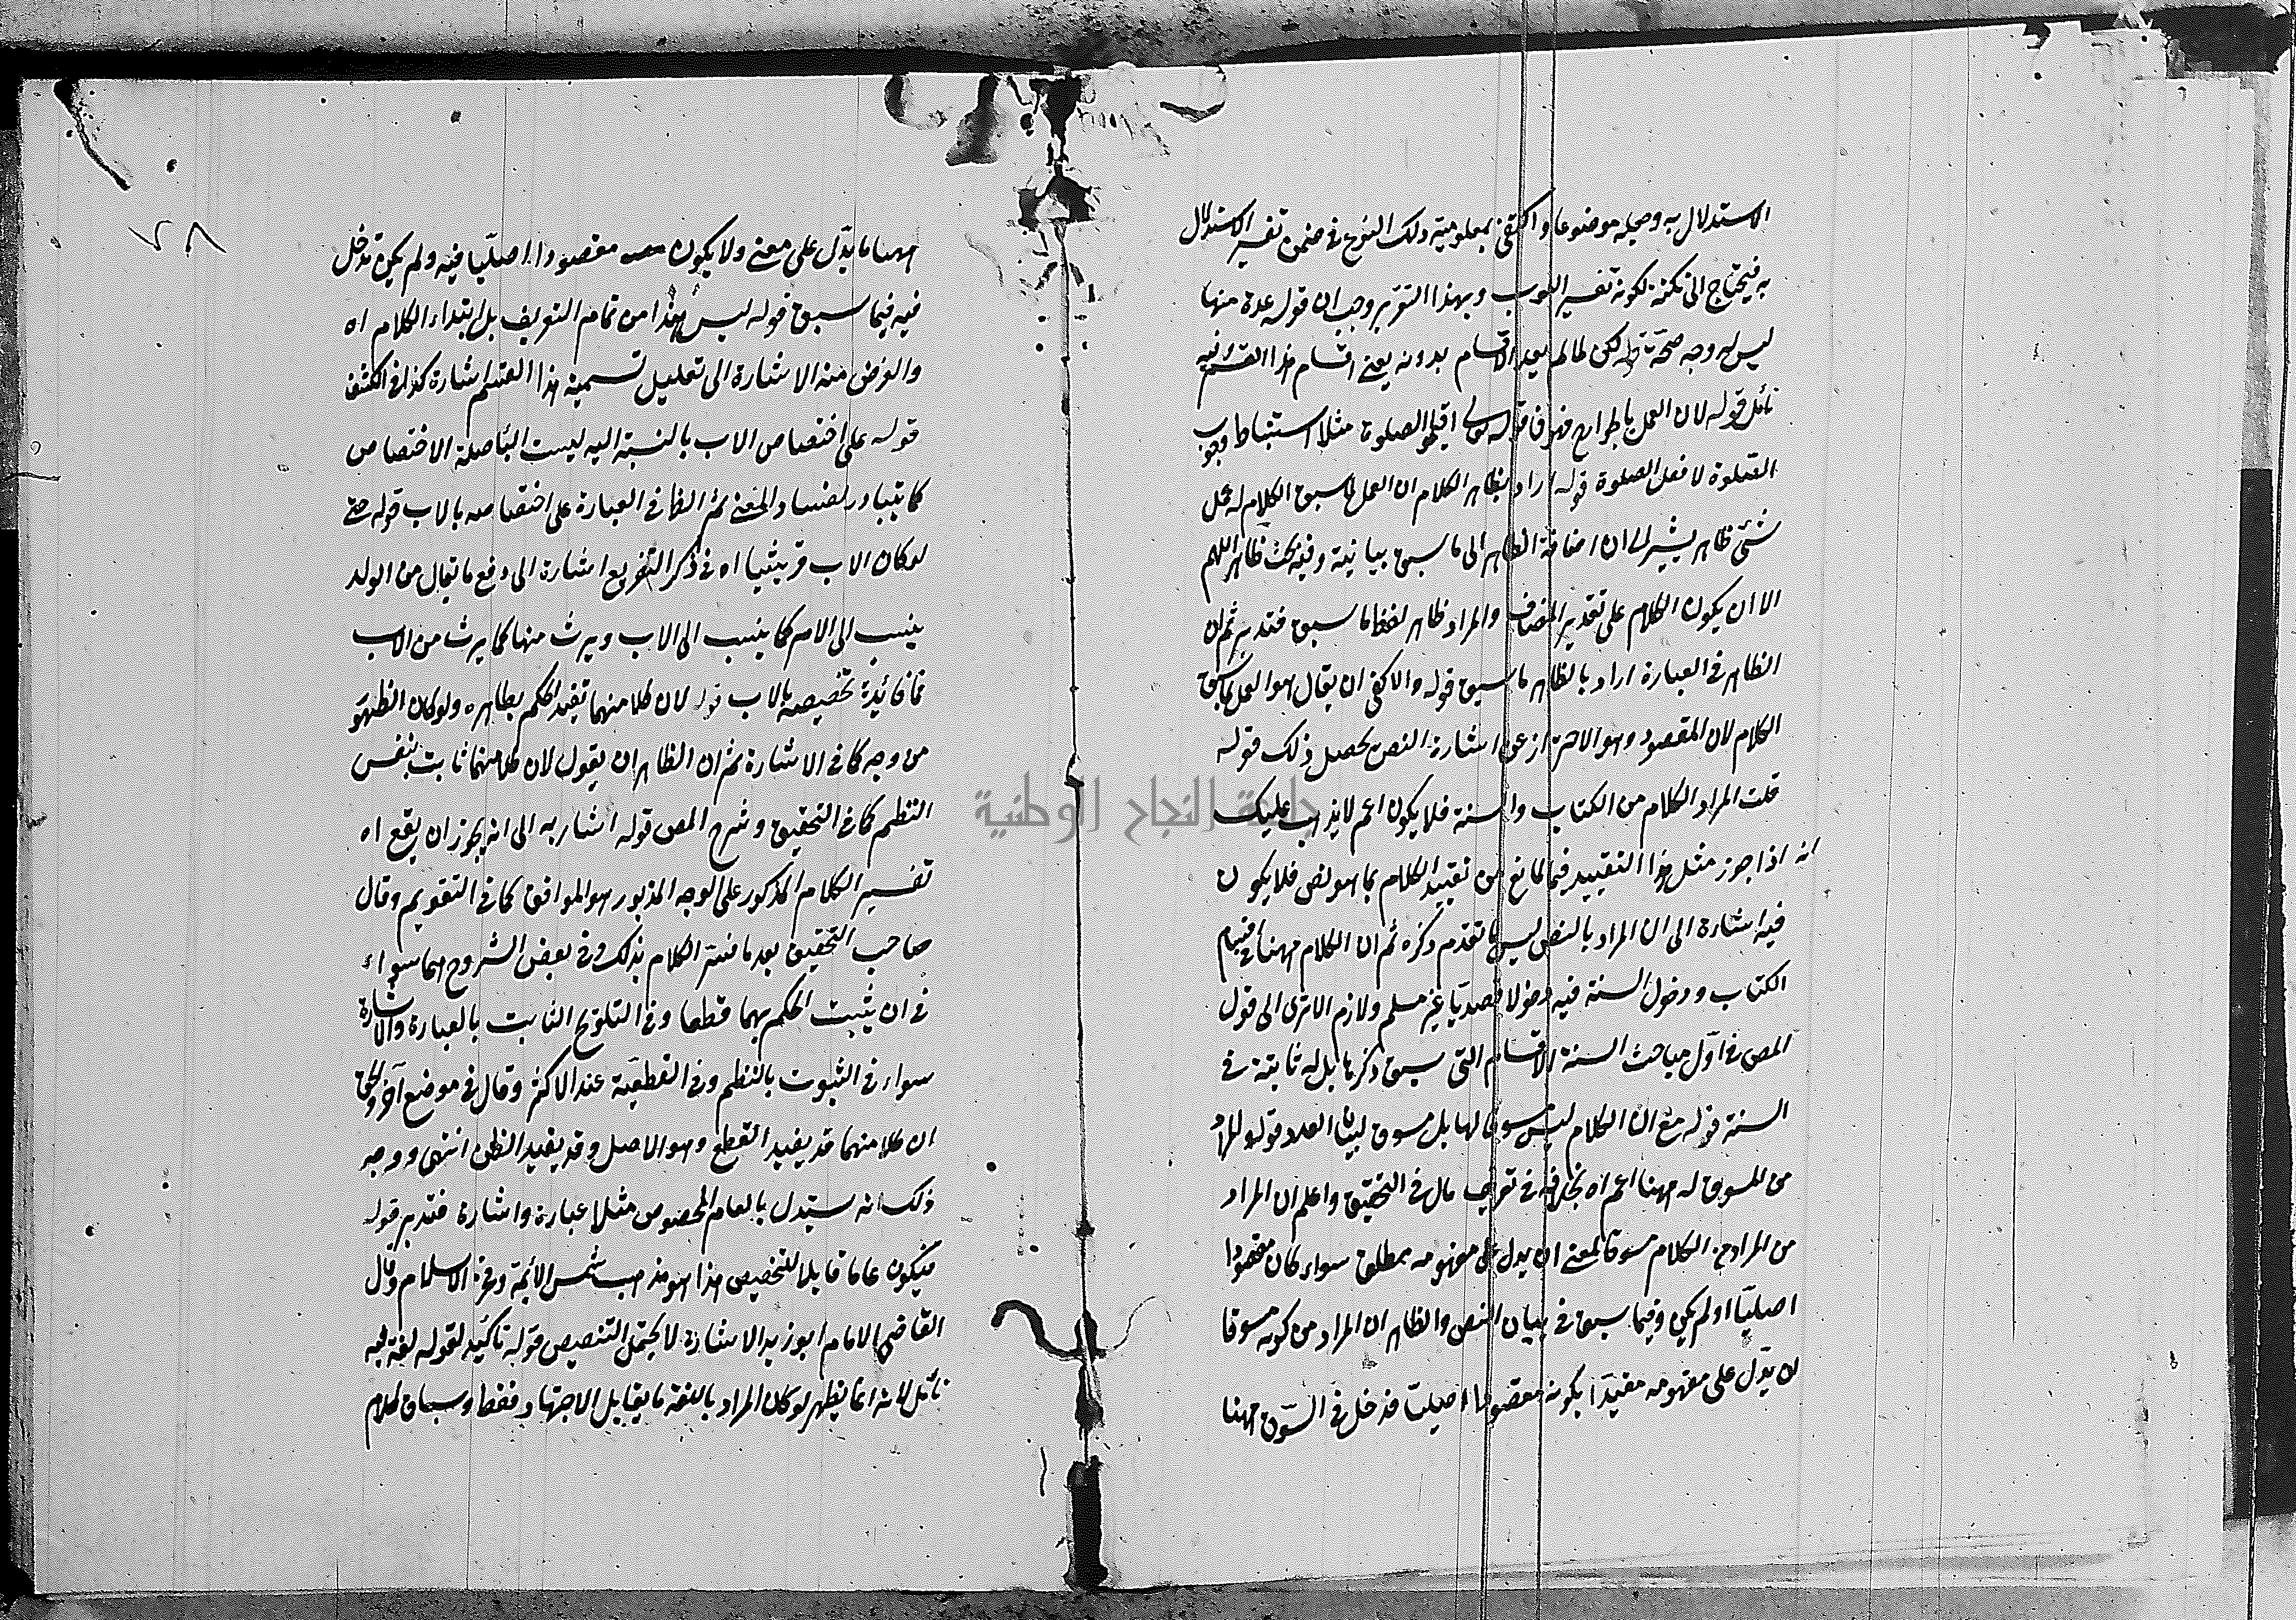 الاستدلال به وجعله موضوعا واكتفى بمعلومية ذلك النوع في ضمن تفسير الاستدلال
به فيحتاج الى نكتة لكونه تفسير وبهذا التقرير وجه ان قوله عدة منها
ليس له وجه صحة لكن لما لم يعد الاقسام بدونه يعني اقسام هذا القسم فيه
تأمل قوله لان العمل بالجوارح في قوله تعالى اقيموا الصلوة مثلا استنباط وجوب
الصلوة لا فعل الصلوة قوله اراد بظاهر الكلام ان العمل بما سبق الكلام له عمل
شئ ظاهر يشير الى ان اضافة الظاهر الى ما سبق بيانية وفيه بحث ظاهر اللهم
الا ان يكون الكلام على تقدير المضاف والمراد ظاهر لفظ ما سبق فتدبر ثم ان
الظاهر في العبارة اراد بالظاهر ما سيق قوله والا كفى ان يقال هو العمل بما سيق
الكلام لان المقصود وهو الاحتراز عن اشارة النص يحصل ذلك قوله
قلت المراد الكلام من الكتاب والسنة فلا يكون اعم لا يذهب عليك
انه اذا جوز مثل هذا التقييد فما المانع من تقييد الكلام بما هو نص فلا يكون
فيه اشارة الى ان المراد بالنص ليس ما تقدم ذكره ثم ان الكلام ههنا في اقسام
الكتاب ودخول السنة فيه دخولا قصديا غير مسلم ولازم الا ترى الى قول
المص في اول مباحث السنة الاقسام التي سبق ذكرها بل له ثابتة في
السنة قوله مع ان الكلام ليس مسوقا لها بل مسوق لبيان العدد قوله المراد
من المسوق له ههنا اعم اه بخلافه في تعريف قال في التحقيق واعلم ان المراد
من المراد من الكلام مسوقا لمعنى ان يدل على مفهومه مطلق سواء كان مقصودا
اصليا او لم يكن وفيما سبق في بيان النص والظاهر ان المراد من كونه مسوقا
ان يدل على مفهومه مقيدا بكونه مقصودا اصليا فدخل في السوق ههنا
٢٨
ههنا ما يدل على معنى ولا يكون مقصودا اصليا فيه ولم يكن تدخل
فيه فيما سبق قوله ليس هذا من تمام التعريف بل ابتداء الكلام اه
والغرض منه الاشارة الى تعليل تسمية هذا القسم اشارة كذا في الكشف
قوله على اختصاص الاب بالنسبة اليه ليست الباصلة الاختصاص
كما يتبادر لفساد المعنى ثم الظ في العبارة على اختصاصه بالاب قوله حتى
لو كان الاب قريشيا اه في ذكر التفريع اشارة الى دفع ما يقال من الولد
ينسب الى الام كما ينسب الى الاب ويرث منها كما يرث من الاب
فما فائدة تخصيصه بالاب قوله لان كلا منهما تفيد الحكم بظاهره ولو كان الظهور
من وجه كما في الاشارة ثم ان الظاهر ان يقول لان كلا منهما ثابت بنفس
النظم كما في التحقيق وشرح المص قوله اشار به الى انه يجوز ان يقع اه
تفسير الكلام المذكور على الوجه المذبور هو الموافق كما في التقويم وقال
صاحب التحقيق بعد ما فسر الكلام بذلك وفي بعض الشروح هما سواء
في ان يثبت الحكم بهما قطعا وفي التلويح الثابت بالعبارة والاشارة
سواء في الثبوت بالنظم وفي القطعية عند الاكثر وقال في موضع آخر والحق
ان كلا منهما قد يفيد القطع وهو الاصل وقد يفيد الظن انتهى ووجه
ذلك انه يستدل بالعام المخصوص مثلا عبارة واشارة فتدبر قوله
فيكون عاما قابلا للتخصيص هذا هو مذهب شمس الائمة وفخر الاسلام وقال
القاضي الامام ابو زيد الاشارة لا يحتمل التخصيص قوله تأكيد لقوله لغة فيه
تأمل لانه انما يظهر لو كان المراد باللغة ما يقابل الاجتهاد فقط وسياق كلام
جامعة النجاح الوطنية